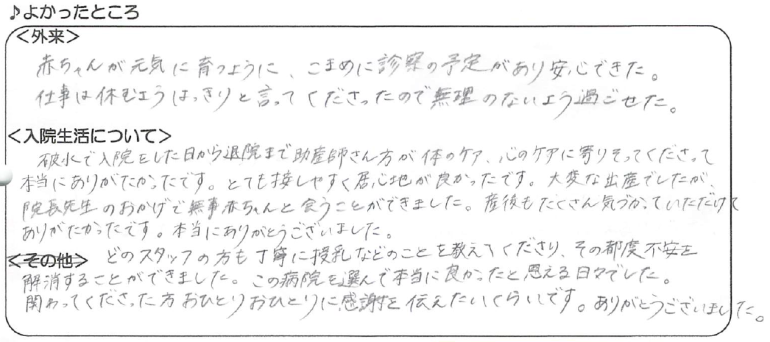 ♪よかったところ
<外来>
赤ちゃんが元気に育つように、こまめに診察の予定があり安心できた。
仕事は休むようはっきりと言ってくださったので無理のないよう過ごせた。
<入院生活について>
破水で入院をした日から退院まで助産師さん方が体のケア、心のケアに寄りそってくださって
本当にありがたかったです。とても接しやすく居心地が良かったです。大変な出産でしたが、
院長先生のおかげで無事赤ちゃんと会うことができました。産後もたくさん気づかっていただけて
ありがたかったです。本当にありがとうございました。
<その他> どのスタッフの方も丁寧に授乳などのことを教えてくださり、その都度不安を
解消することができました。この病院を選んで本当に良かったと思える日々でした。
関わってくださった方おひとりおひとりに感謝を伝えたいくらいです。ありがとうございました。